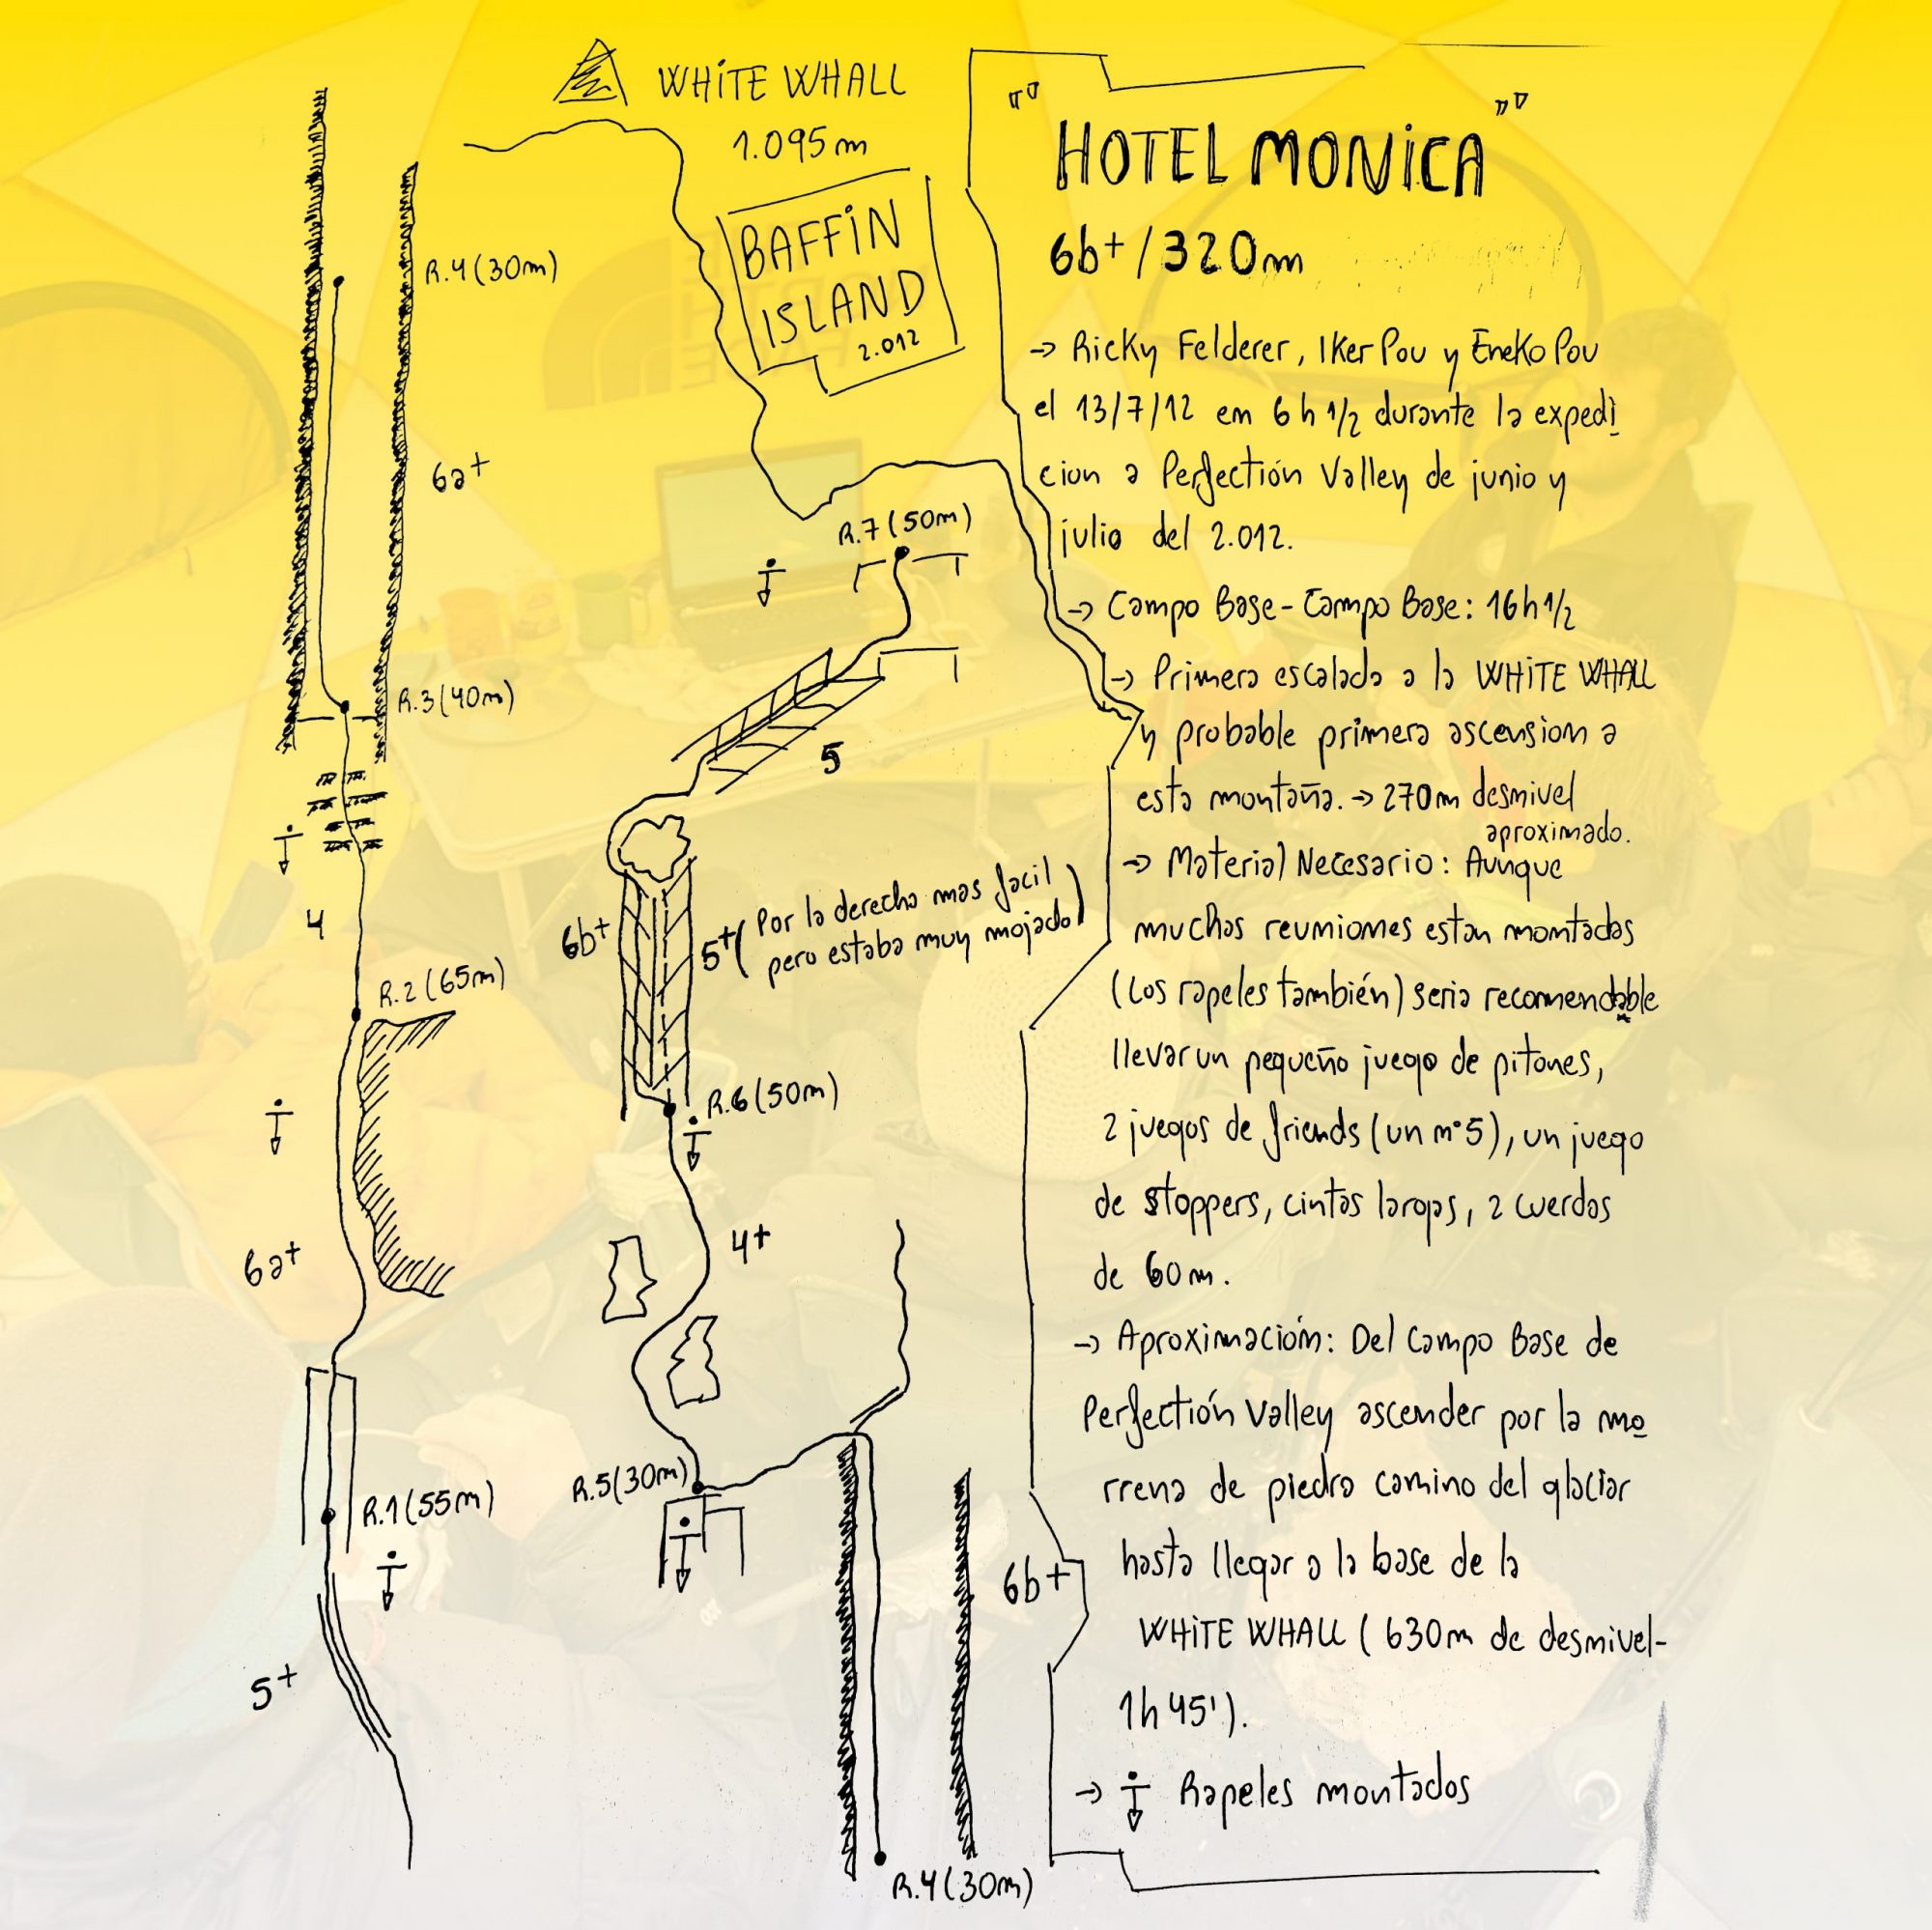 WHITE WHALL
1.095m
BAFFIN
ISLAND
2.012
R.4 (30m)
6a+
R.3 (40m)
4
R.2 (65m)
6a+
R.1 (55m)
5+
R.7 (50m)
5
6b+
5+ (Por la derecha mas facil
pero estaba muy mojado)
R.6 (50m)
4+
R.5 (30m)
6b+
R.4 (30m)
"HOTEL MONICA"
6b+/320m
→ Ricky Felderer, Iker Pou y Eneko Pou
el 13/7/12 en 6 h 1/2 durante la expedi
cion a Perfectión Valley de junio y
julio del 2.012.
→ Campo Base - Campo Base: 16h 1/2
→ Primera escalada a la WHITE WHALL
y probable primera ascension a
esta montaña. → 270m desnivel
aproximado.
→ Material Necesario: Aunque
muchas reuniones estan montadas
(Los rapeles también) seria recomendable
llevar un pequeño juego de pitones,
2 juegos de friends (un nº 5), un juego
de stoppers, cintas largas, 2 cuerdas
de 60m.
→ Aproximación: Del Campo Base de
Perfectión Valley ascender por la mo
rrena de piedra camino del glaciar
hasta llegar a la base de la
WHITE WHALL (630m de desnivel-
1h 45').
→ Rapeles montados